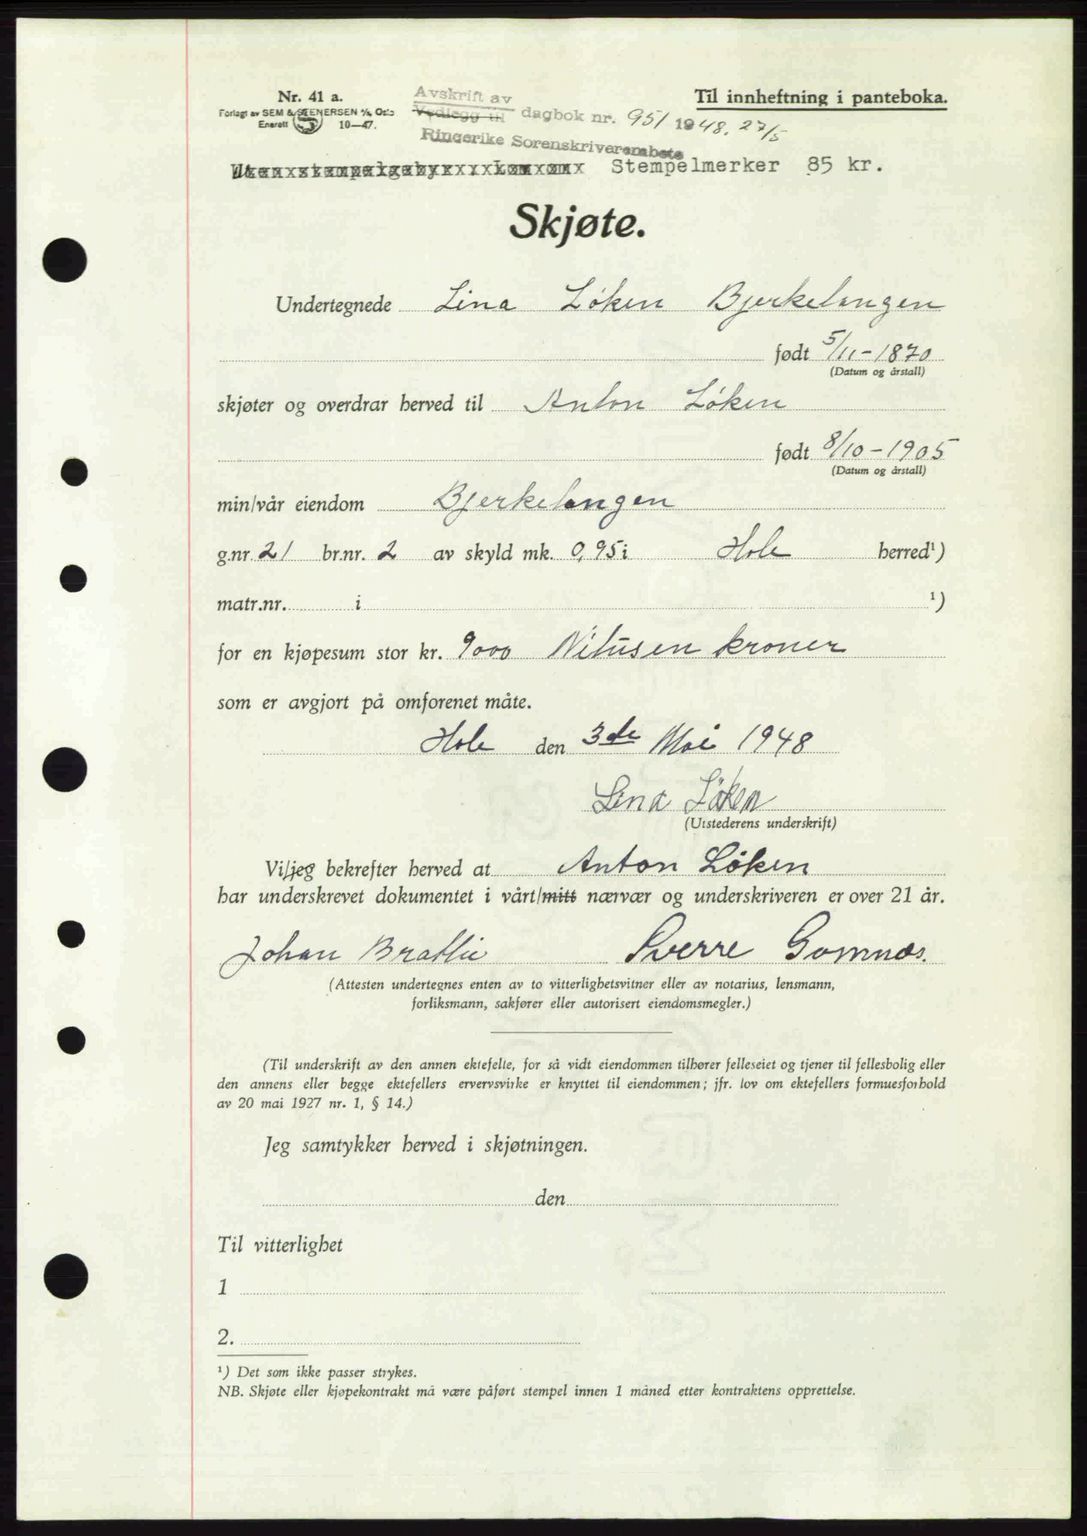 Nr. 41 a.
Forlagt av SEM & STENERSEN A/S, Oslo
Enerett 10—47.
Avskrift av
Vedlegg til dagbok nr. 951 1948. 27/5
Ringerike Sorenskriverembete
Til innheftning i panteboka.
Stempelmerker 85 kr.
Skjøte.
Undertegnede Lina Løken Bjerkelangen
født 5/11-1870
(Datum og årstall)
skjøter og overdrar herved til Anton Løken
født 8/10-1905
(Datum og årstall)
min/vår eiendom Bjerkelangen
g.nr. 21 br.nr. 2 av skyld mk. 0,95 i Hole herred¹)
matr.nr. i ¹)
for en kjøpesum stor kr. 9000 Nitusen kroner
som er avgjort på omforenet måte.
Hole den 3de Mai 1948
Lina Løken
(Utstederens underskrift)
Vi/jeg bekrefter herved at Anton Løken
har underskrevet dokumentet i vårt/mitt nærvær og underskriveren er over 21 år.
Johan Brattli Sverre Gomnæs.
(Attesten undertegnes enten av to vitterlighetsvitner eller av notarius, lensmann,
forliksmann, sakfører eller autorisert eiendomsmegler.)
(Til underskrift av den annen ektefelte, for så vidt eiendommen tilhører felleseiet og tjener til fellesbolig eller
den annens eller begge ektefellers ervervsvirke er knyttet til eiendommen; jfr. lov om ektefellers formuesforhold
av 20 mai 1927 nr. 1, § 14.)
Jeg samtykker herved i skjøtningen.
den
Til vitterlighet
1
2.
¹) Det som ikke passer strykes.
NB. Skjøte eller kjøpekontrakt må være påført stempel innen 1 måned etter kontraktens opprettelse.